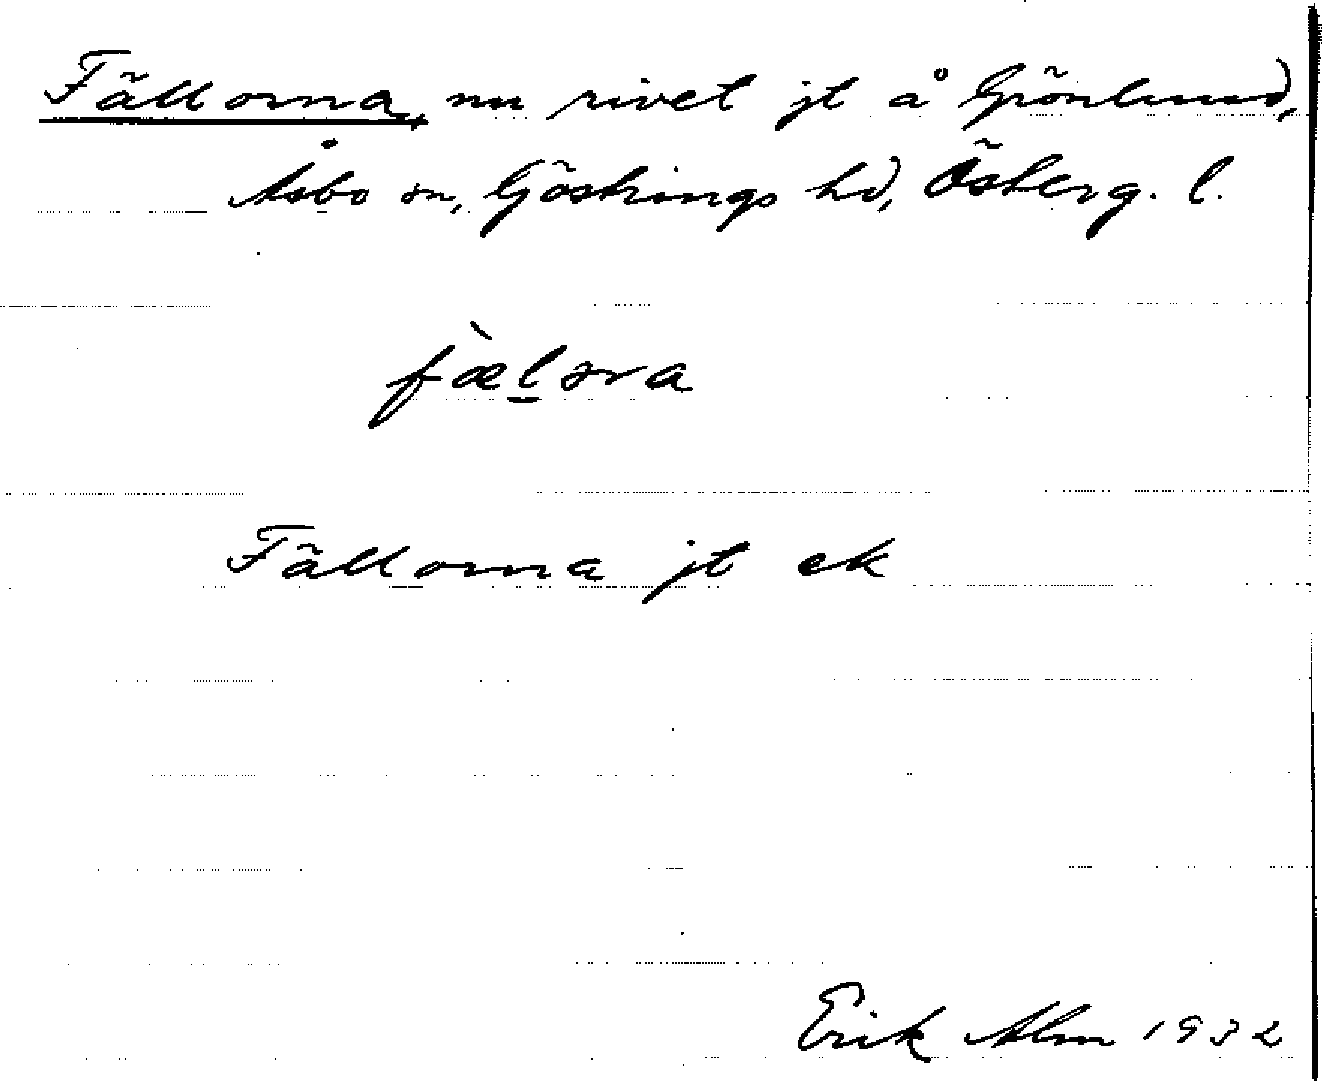 Fällorna, nu rivet jt å Grönlund,
Åsbo sn, Göstrings hd, Österg. l.
fælọra
Fällorna jt ek
Erik Alm 1932